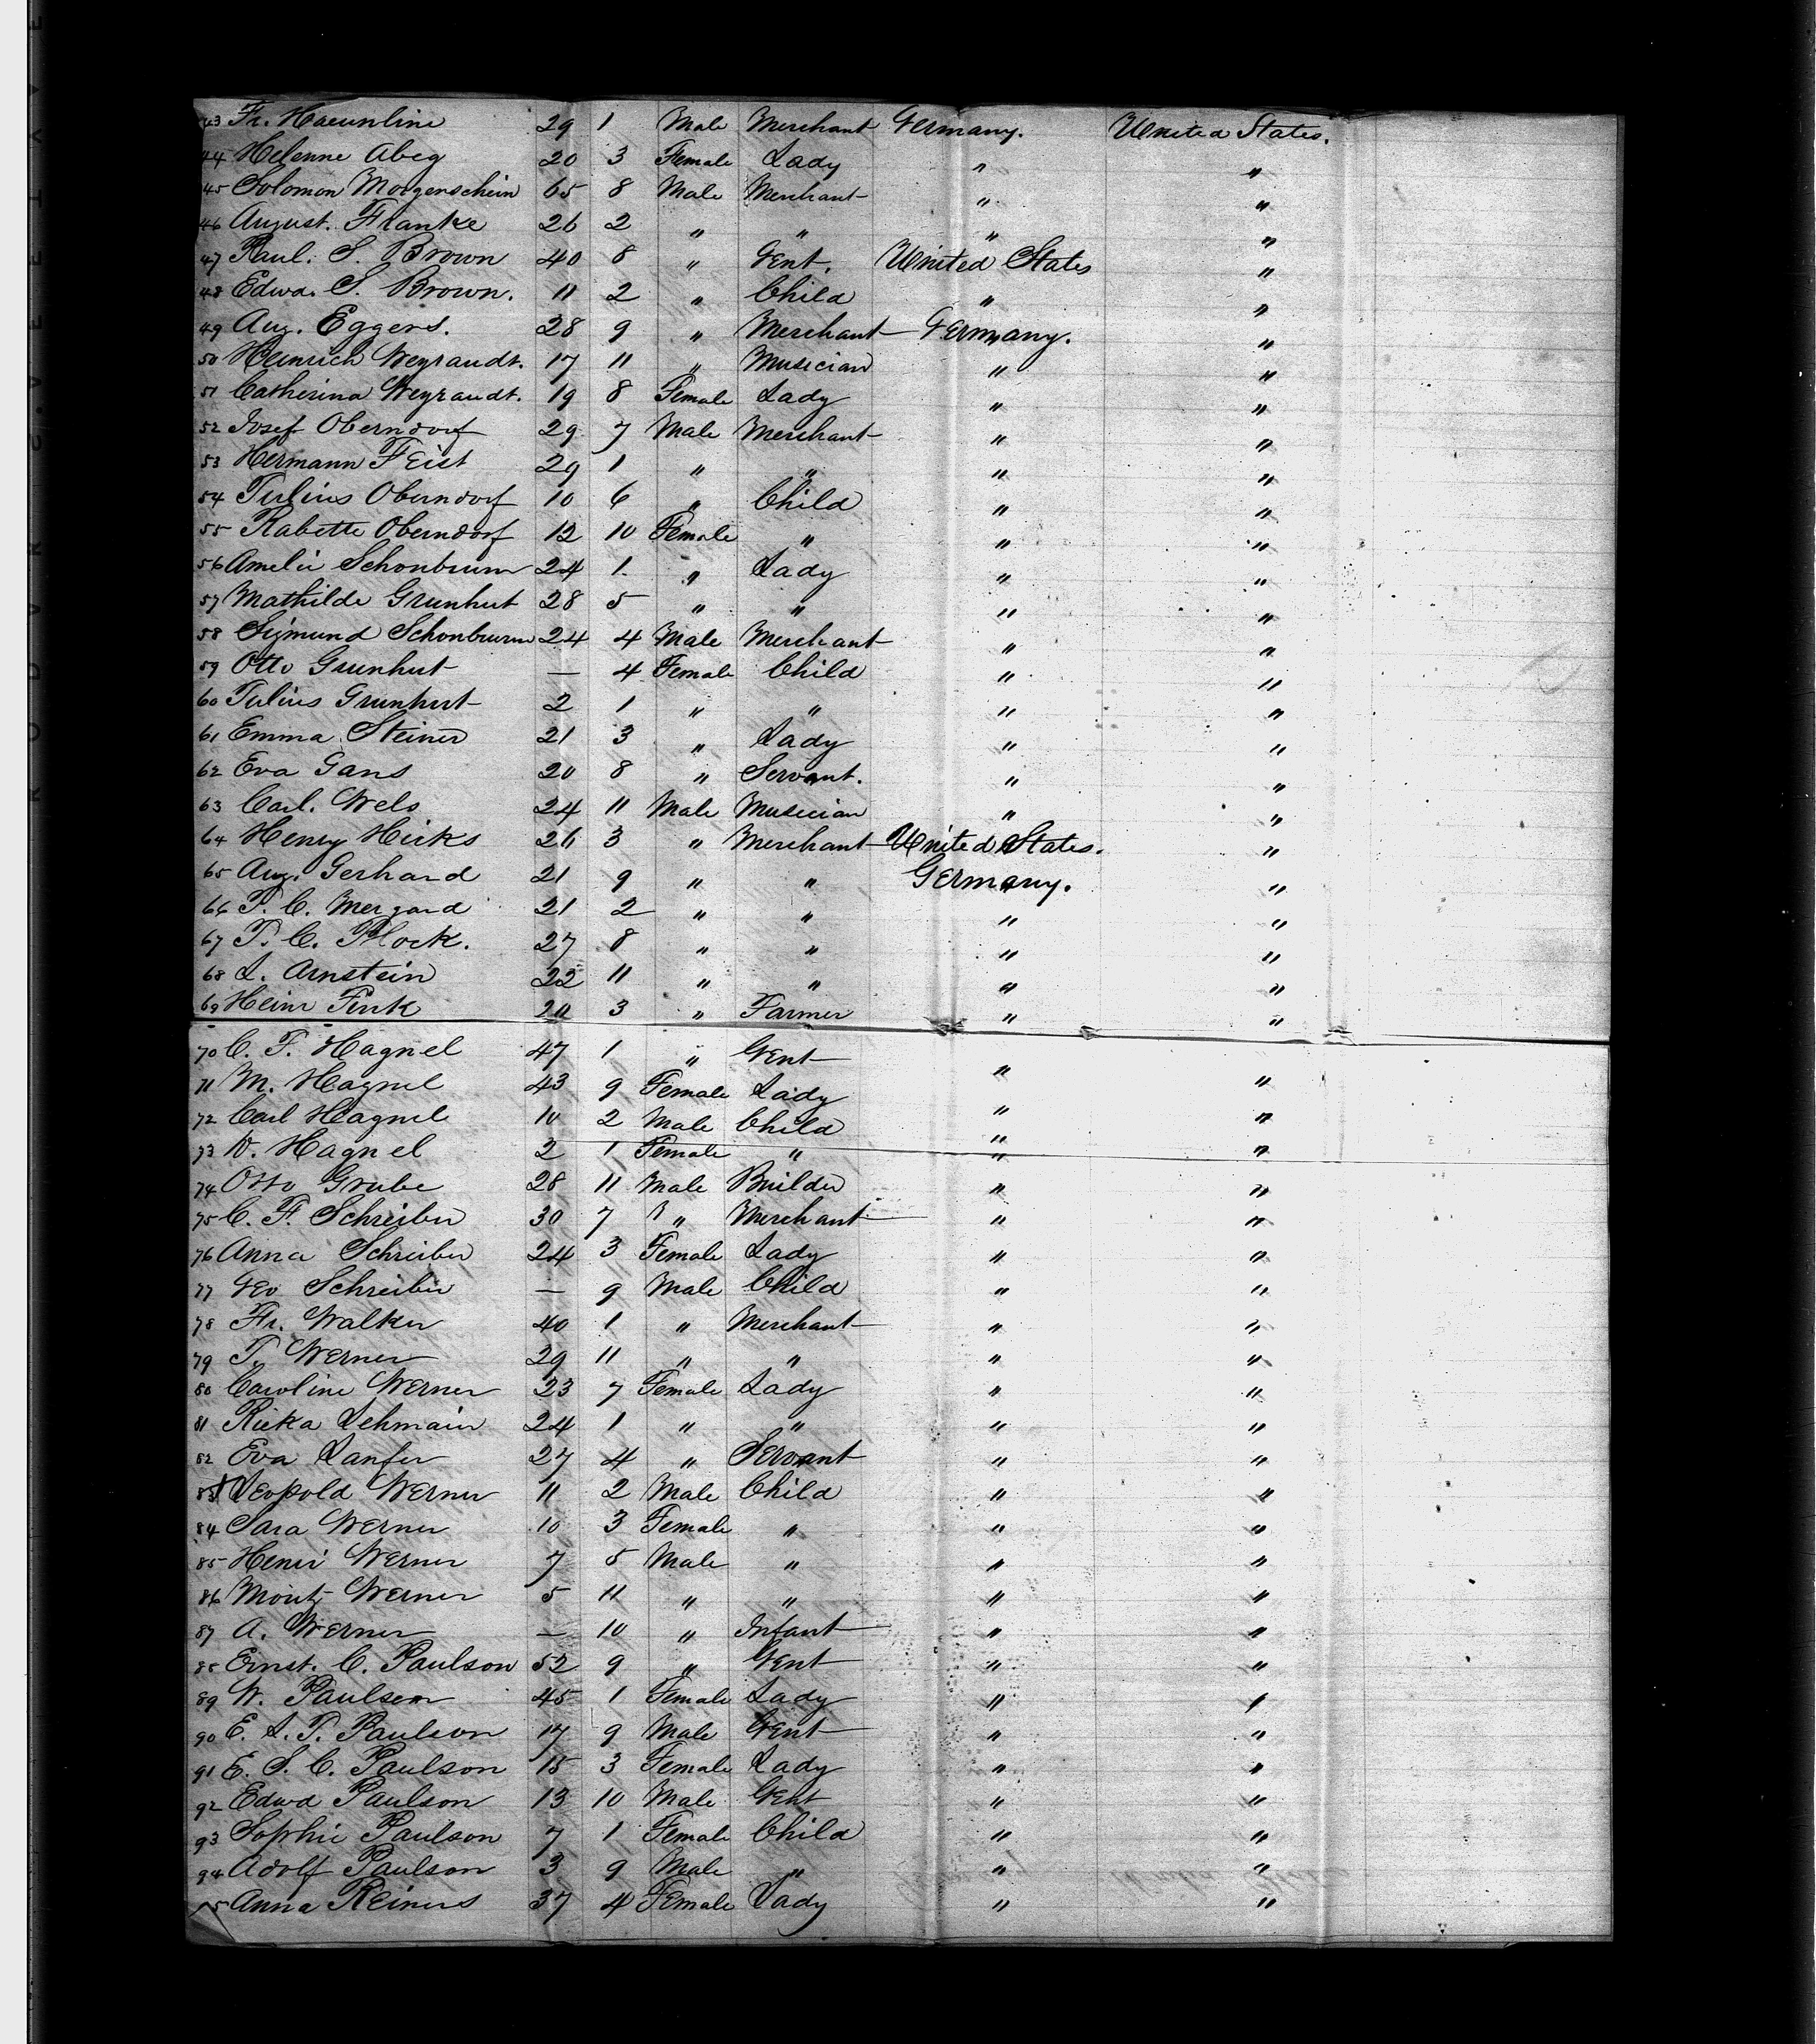 43 Fr. Haeunline 29 1 Male Merchant Germany. United States.
44 Helenne Abeg 20 3 Female Lady " "
45 Solomon Morgenschein 65 8 Male Merchant " "
46 August. Franke 26 2 " " " "
47 Paul. S. Brown 40 8 " Gent. United States "
48 Edwd. S. Brown. 11 2 " Child " "
49 Aug. Eggers. 28 9 " Merchant Germany. "
50 Heinrich Weyrandt. 17 11 " Musician " "
51 Catherina Weyrandt. 19 8 Female Lady " "
52 Josef Oberndorf 29 7 Male Merchant " "
53 Hermann Feist 29 1 " " " "
54 Julius Oberndorf 10 6 " Child " "
55 Babette Oberndorf 12 10 Female " " "
56 Amelie Schonbrunn 24 1 " Lady " "
57 Mathilde Grunhut 28 5 " " " "
58 Sigmund Schonbrunn 24 4 Male Merchant " "
59 Otto Grunhut — 4 Female Child " "
60 Julius Grunhut 2 1 " " " "
61 Emma Steiner 21 3 " Lady " "
62 Eva Gans 20 8 " Servant. " "
63 Carl. Wels 24 11 Male Musician " "
64 Henry Hicks 26 3 " Merchant United States. "
65 Aug. Gerhard 21 9 " " Germany. "
66 J. C. Mergard 21 2 " " " "
67 J. C. Plock. 27 8 " " " "
68 L. Arnstein 22 11 " " " "
69 Heinr Fink 3 " Farmer " "
70 C. F. Hagnel 47 1 " Gent " "
71 M. Hagnel 43 9 Female Lady " "
72 Carl Hagnel 10 2 Male Child " "
73 W. Hagnel 2 1 Female " " "
74 Otto Grube 28 11 Male Builder " "
75 C. F. Schreiber 30 7 " Merchant " "
76 Anna Schreiber 24 3 Female Lady " "
77 Geo Schreiber — 9 Male Child " "
78 Fr. Walker 40 1 " Merchant " "
79 J. Werner 29 11 " " " "
80 Caroline Werner 23 7 Female Lady " "
81 Rieka Lehmain 24 1 " " " "
82 Eva Lanfer 27 4 " Servant " "
83 Leopold Werner 11 2 Male Child " "
84 Sara Werner 10 3 Female " " "
85 Henri Werner 7 5 Male " " "
86 Moritz Werner 5 11 " " " "
87 A. Werner — 10 " Infant " "
88 Ernst. C. Paulson 52 9 " Gent " "
89 W. Paulsen 45 1 Female Lady " "
90 E. L. J. Paulson 17 9 Male Gent " "
91 E. S. C. Paulson 15 3 Female Lady " "
92 Edwd Paulson 13 10 Male Gent " "
93 Sophie Paulson 7 1 Female Child " "
94 Adolf Paulson 3 9 Male " " "
5 Anna Reiners 37 4 Female Lady " "